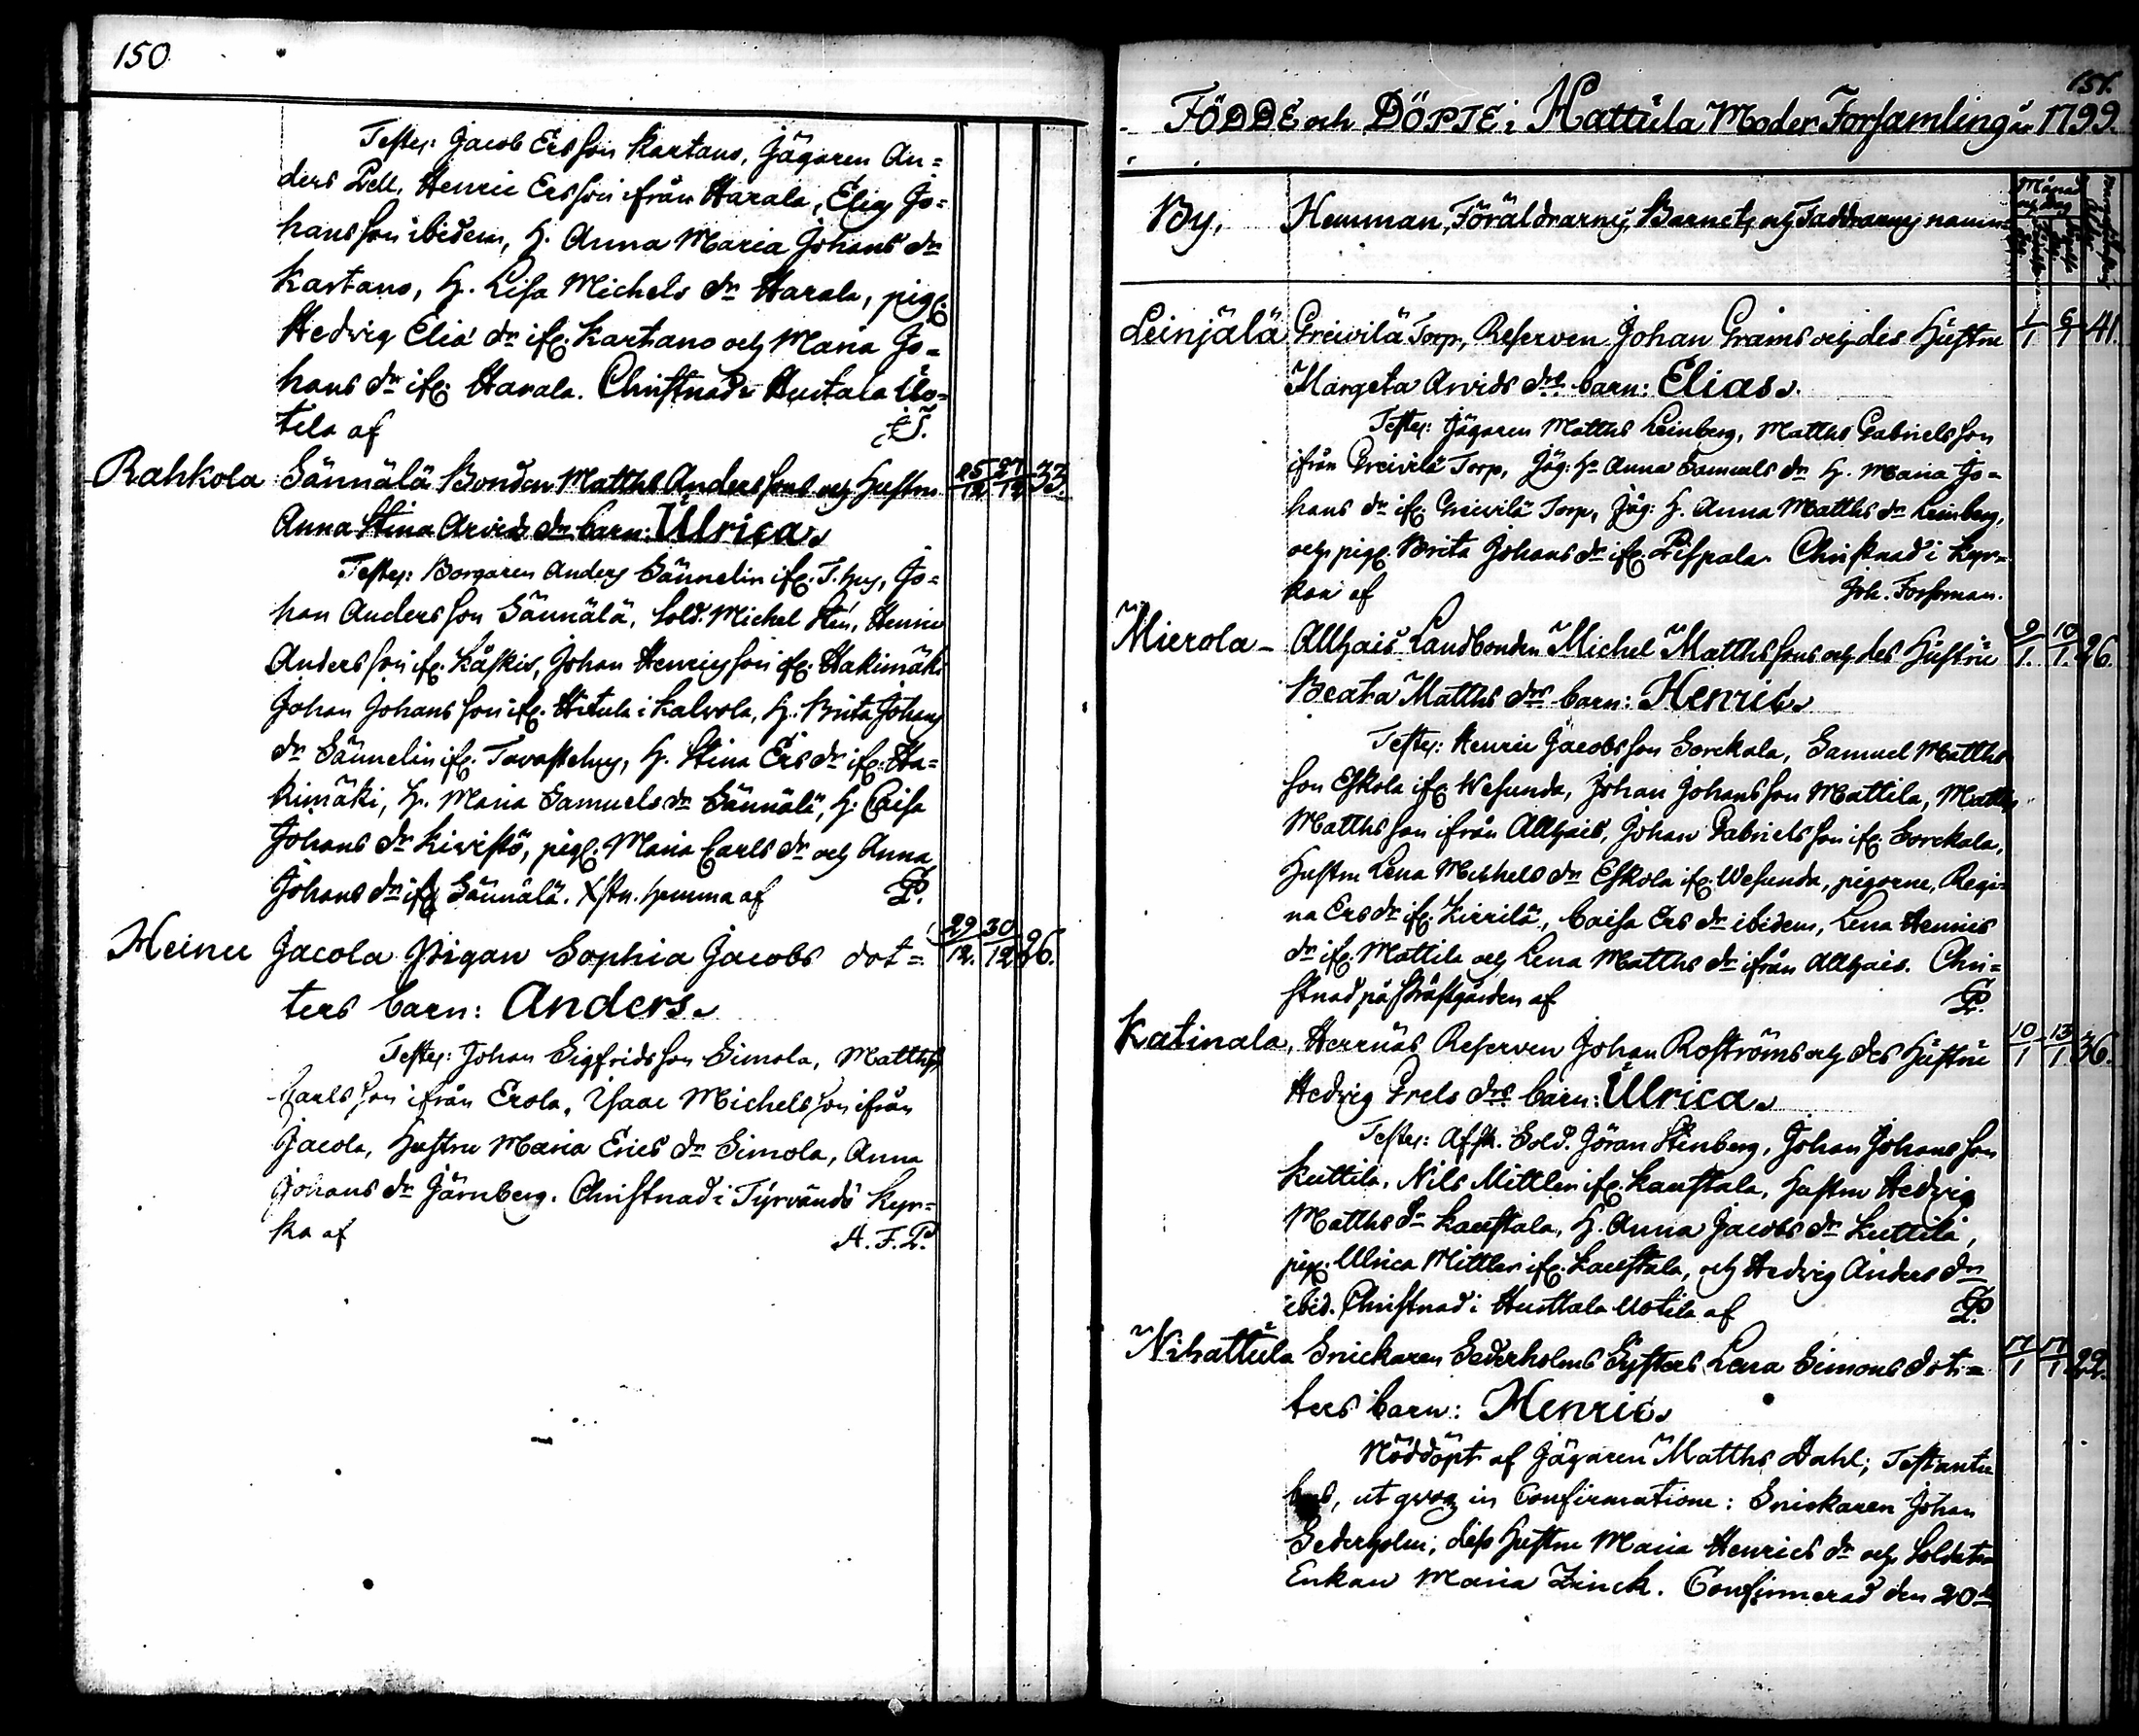 150
Testes: Jacob Ersson Kartano, Jägaren An=
ders Pell, Henric Ersson ifrån Harala, Elias Jo=
hansson ibidem, H. Anna Maria Johans dr
Kartano, H. Lisa Michels dr Harala, pig.
Hedvig Elia dr ifr. Kartano och Maria Jo=
hans dr ifr. Harala. Christnad i Huttala Uo=
tila af
Rahkola Sännälä Bonden Matths Anderssons och hustru 25/12 27/12 33.
Anna Stina Arvids dr barn: Ulrica.
Testes: Borgaren Anders Sännelin ifr. T.hus, Jo=
han Andersson Sännälä, Sold. Michel Sten, Henric
Andersson ifr. Kåskis, Johan Henricsson ifr. Hakimäki
Johan Johansson ifr. Hitula i Kalvola, H. Brita Johans
dr Sännelin ifr. Tavastehus, H. Stina Ers dr ifr. Ha=
kimäki, H. Maria Samuels dr Sännälä, H. Caisa
Johans dr Kivistö, pig. Maria Carls dr och Anna
Johans dr ifr. Sännälä. Xstn. hemma af P.
Heinu Jacola Pigan Sophia Jacobs dot= 29/12. 30/12 26.
ters barn: Anders.
Testes: Johan Sigfridsson Simola, Matths
Carlsson ifrån Erola, Isaac Michelsson ifrån
Jacola, Hustru Maria Erics dr Simola, Anna
Johans dr Järnberg. Christnad i Tyrvändö Kyr=
ka af A. F. P.
151.
FÖDDE och DÖPTE i Hattula Moder Församling år 1799.
By, Hemman, Föräldrarnes, Barnets och Faddrarnes namn
Leinjälä Greivilä Torp, Reserven Johan Grams och des Hustru 1/1 6/1 41.
Margeta Arvids drs barn: Elias.
Testes: Jägaren Matths Leinberg, Matths Gabrielsson
ifrån Greivilä Torp, Jäg: Ha Anna Samuels dr H. Maria Jo=
hans dr ifr. Greivilä Torp, Jäg: H. Anna Matths dr Leinberg,
och pig. Brita Johans dr ifr. Pispala. Christnad i Kyr=
kan af Joh. Forssman.
Mierola Allhais Landbonden Michel Matthssons och des Hustru 9/1. 10/1. 26.
Beata Matths drs barn: Henric.
Testes: Henric Jacobsson Sorckala, Samuel Matths
son Eskola ifr. Wesunda, Johan Johansson Mattila, Matths
Matthsson ifrån Allhais, Johan Gabrielsson ifr. Sorckala,
Hustru Lena Michels dr Eskola ifr. Wesunda, pigorne, Regi=
na Ers dr ifr. Kirrilä, Caisa Ers dr ibidem, Lena Henrics
dr ifr. Mattila och Lena Matths dr ifrån Allhais. Chri=
stnad på Prästgården af P.
Katinala, Herrnäs Reserven Johan Roströms och des Hustru 10/1 13/1 36.
Hedvig Grels drs barn: Ulrica.
Testes: Afsk. Sold. Göran Stenberg, Johan Johansson
Kuttila, Nils Mittler ifr. Kaustala, Hustru Hedvig
Matths dr Kaustala, H. Anna Jacobs dr Kuttila,
pig. Ulrica Mittler ifr. Kaustala, och Hedvig Anders dr
ibid. Christnad i Huttala Uotila af P.
Nihattula Snickaren Sederholms Systers Lena Simons dot= 17/1 17/1 22.
ters barn: Henric.
Nöddöpt af Jägaren Matths Dahl; Testanti
bus, ut quoq in Confirmatione: Snickaren Johan
Sederholm, dess Hustru Maria Henrics dr och Soldats
Enkan Maria Zinck. Confirmerad den 20de